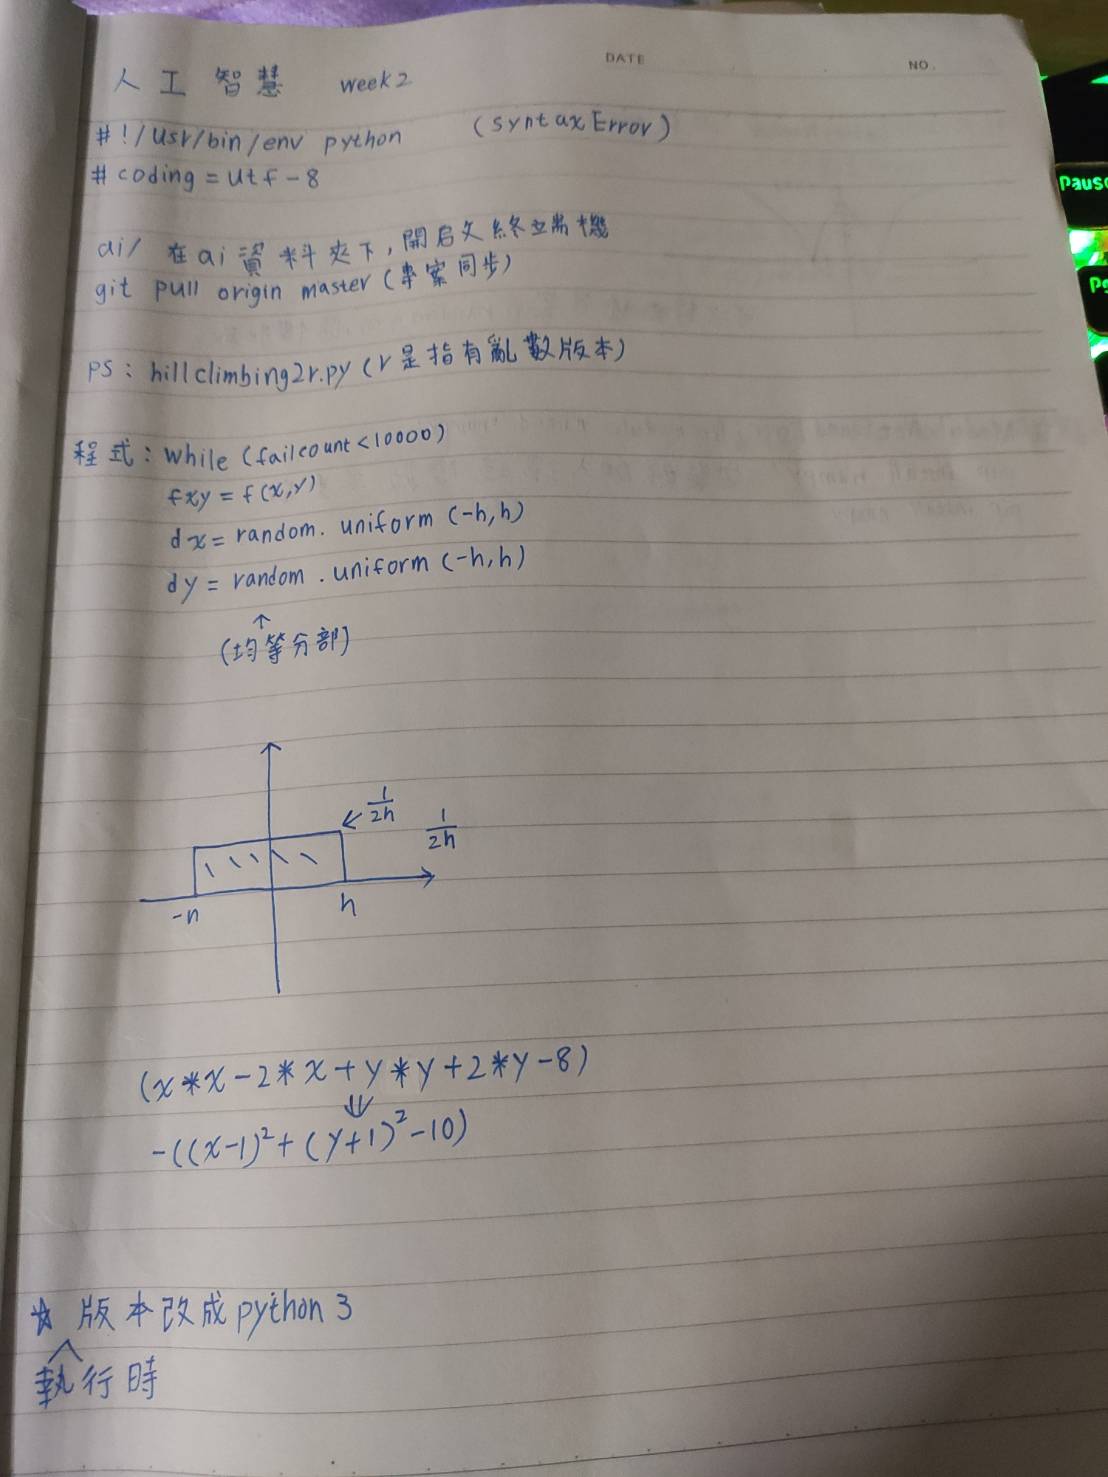 DATE
NO.
人工智慧 week2
#!/usr/bin/env python (syntax Error)
# coding=utf-8
ai/ 在ai資料夾下,開启文終端機
git pull origin master (專案同步)
PS: hillclimbing2r.py (r是指有亂數版本)
程式: while (failcount<10000)
fxy = f(x,y)
dx = random. uniform (-h,h)
dy = random . uniform (-h,h)
↑
(均等分部)
1/2h
1/2h
-h
h
(x*x-2*x+y*y+2*y-8)
⇓
-((x-1)²+(y+1)²-10)
☆ 版本改成python 3
執行時
Pause